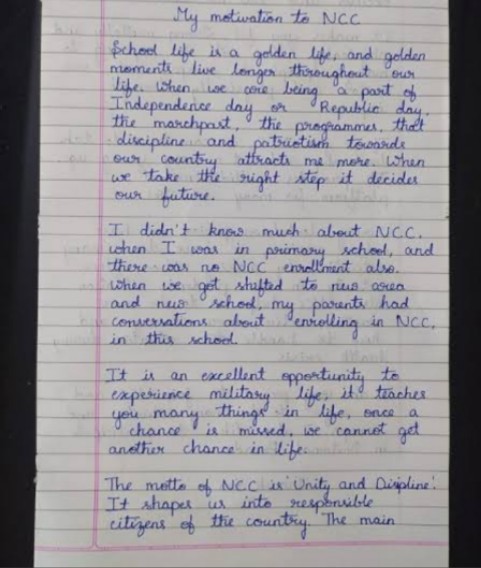 My motivation to NCC
School life is a golden life, and golden
moments live longer throughout our
life. When we are being a part of
Independence day or Republic day,
the marchpast, the programmes, that
discipline and patriotism towards
our country attracts me more. When
we take the right step it decides
our future.
I didn't know much about NCC.
when I was in primary school, and
there was no NCC enrollment also.
When we got shifted to new area
and new school, my parents had
conversations about enrolling in NCC,
in this school.
It is an excellent opportunity to
experience military life, it teaches
you many things in life, once a
chance is missed, we cannot get
another chance in life.
The motto of NCC is 'Unity and Disipline'.
It shapes us into responsible
citizens of the country. The main